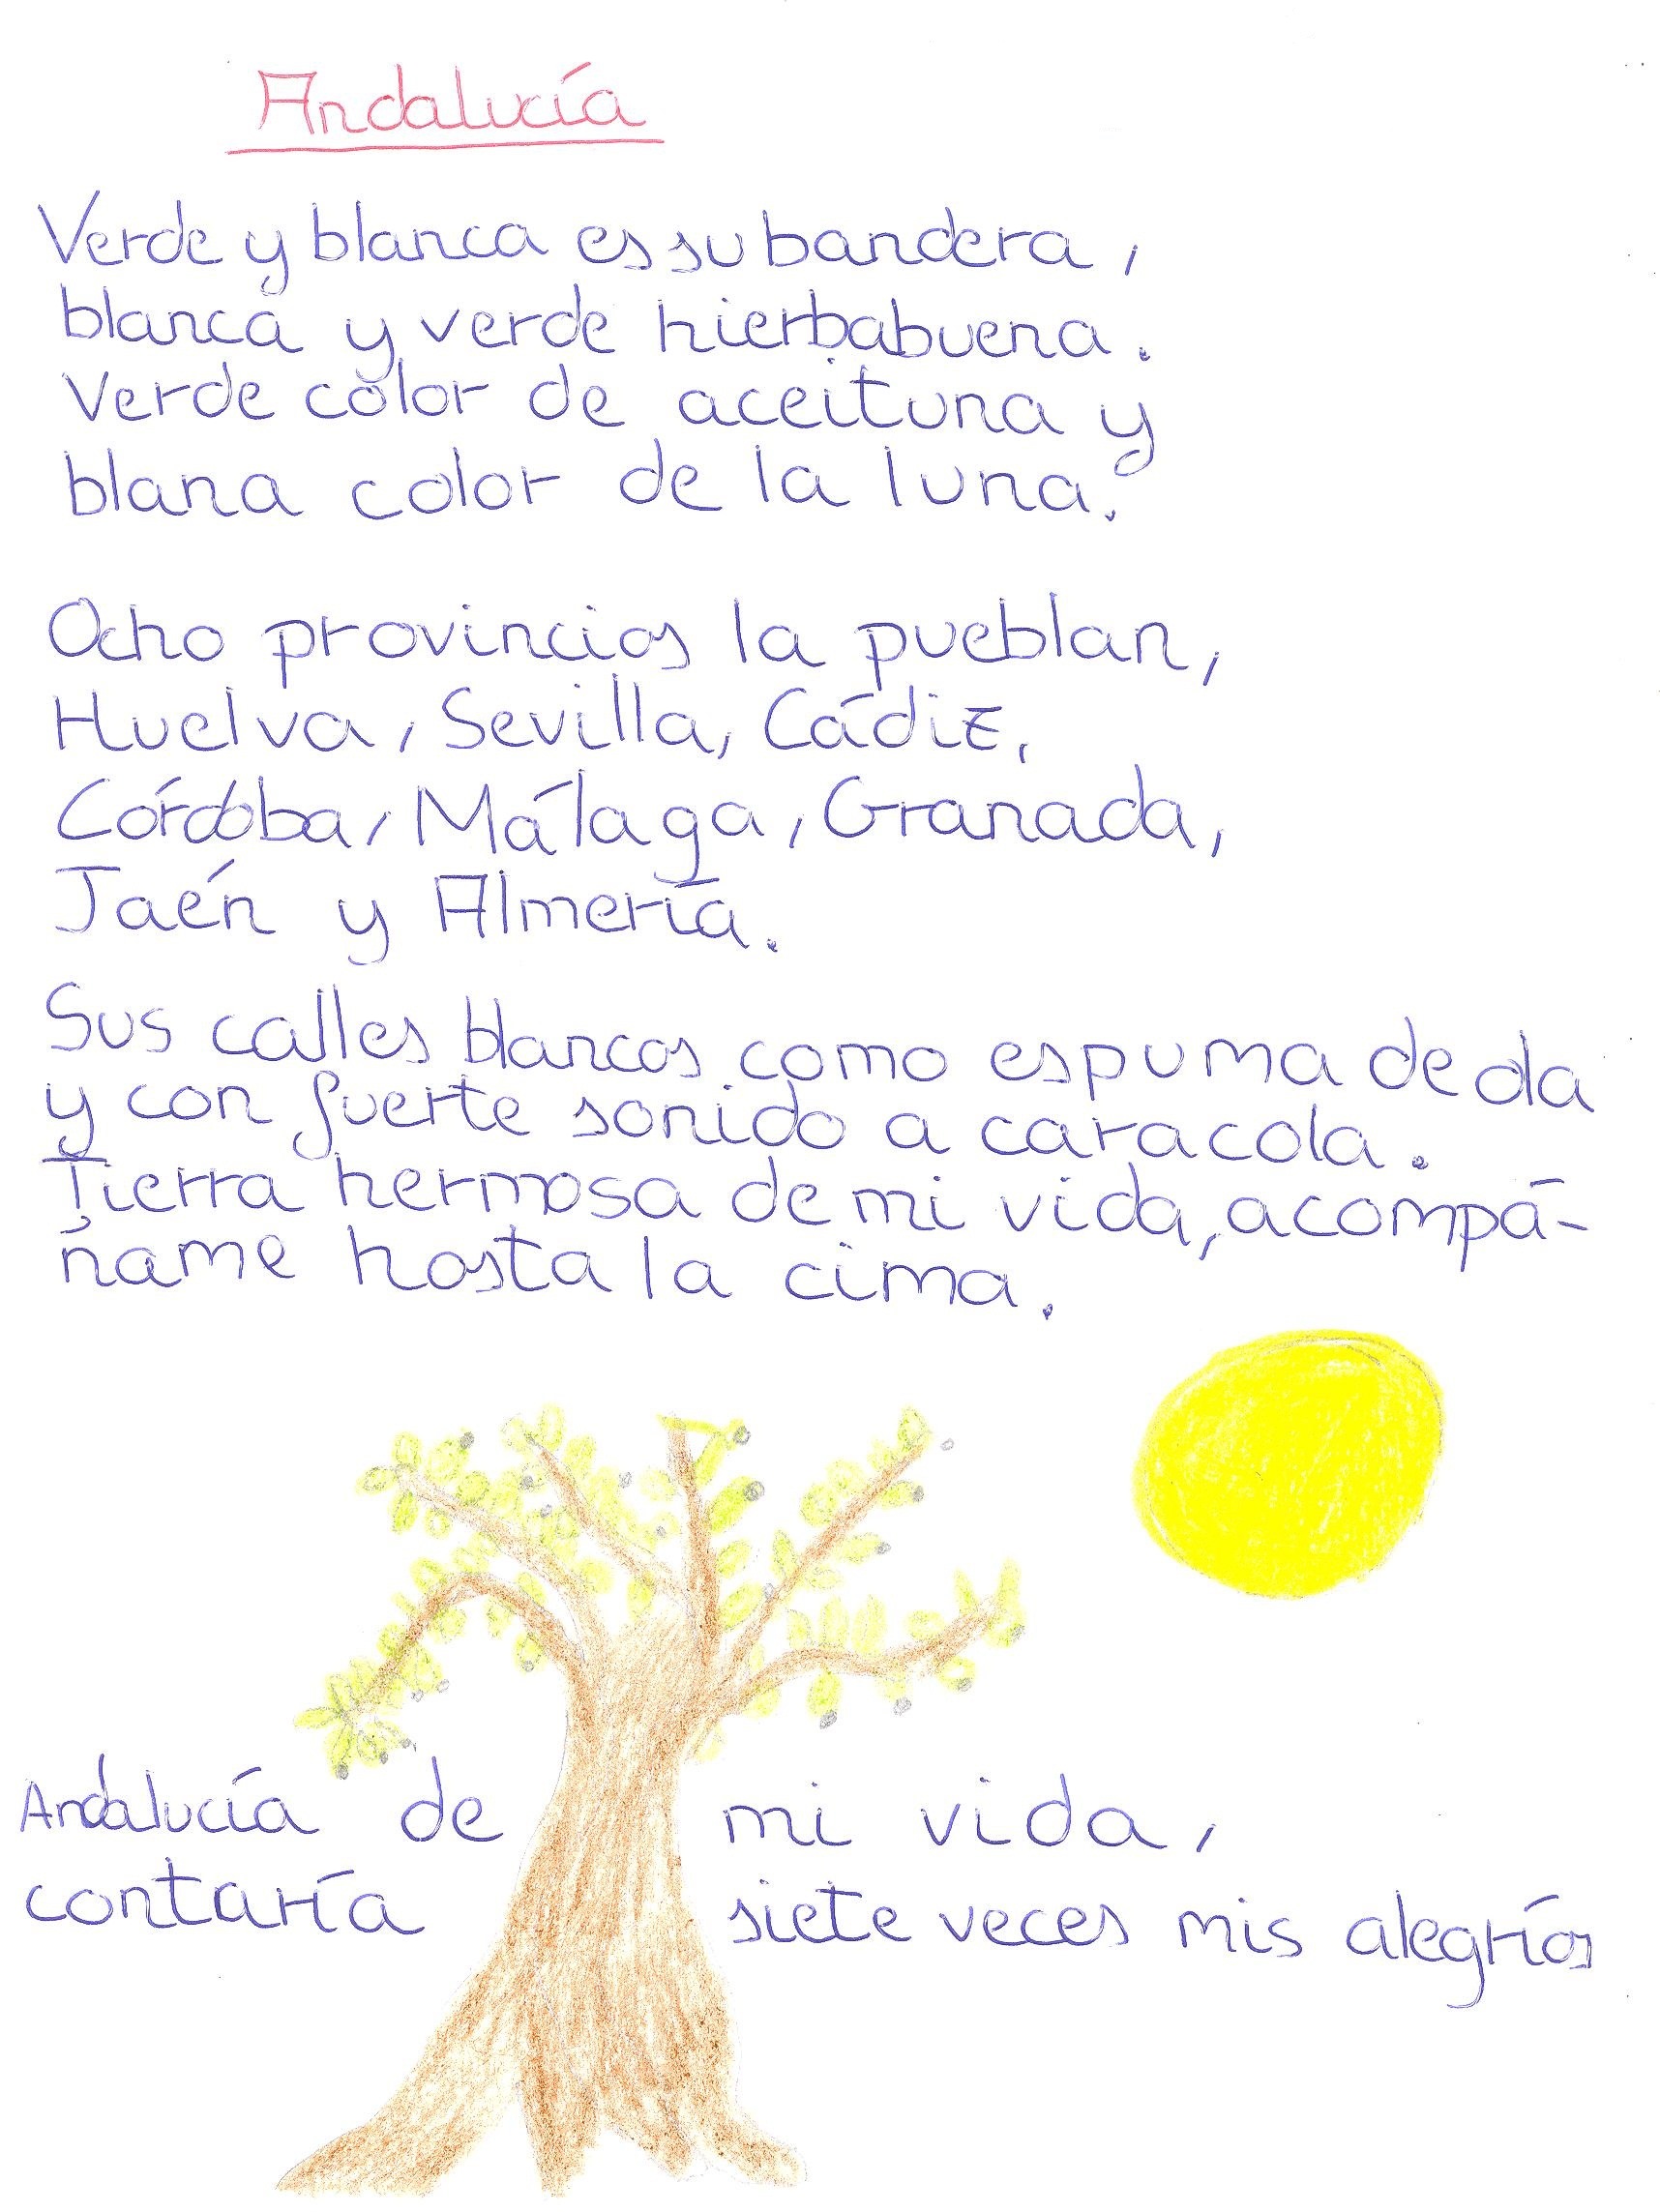 Andalucía
Verde y blanca es su bandera,
blanca y verde hierbabuena.
Verde color de aceituna y
blana color de la luna.
Ocho provincias la pueblan,
Huelva, Sevilla, Cádiz,
Córdoba, Málaga, Granada,
Jaén y Almería.
Sus calles blancas como espuma de ola
y con fuerte sonido a caracola.
Tierra hermosa de mi vida, acompá-
ñame hasta la cima.
Andalucía de mi vida,
contaría siete veces mis alegrías